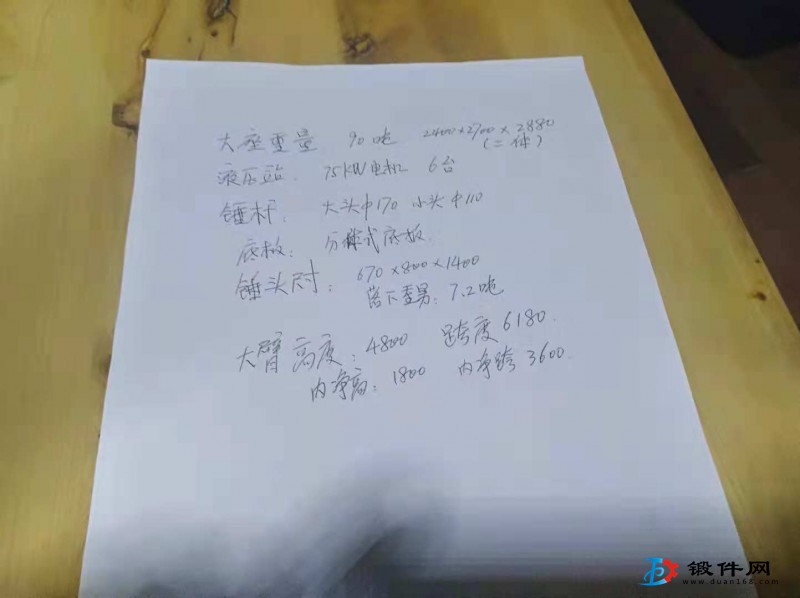 大座重量 90吨 2400×2700×2880
(二体)
液压站. 75KW电机 6台
锤杆: 大头Φ170 小头Φ110
底板: 分体式底板.
锤头尺寸: 670×800×1400
落下重量: 7.2吨
大臂高度: 4800 跨度6180.
内净高: 1800 内净跨3600.
锻件网
www.duan168.com